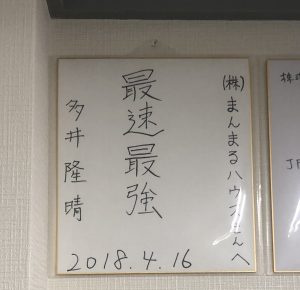 (株)まんまるハウスさんへ
最速最強
多井隆晴
2018.4.16
株
JP